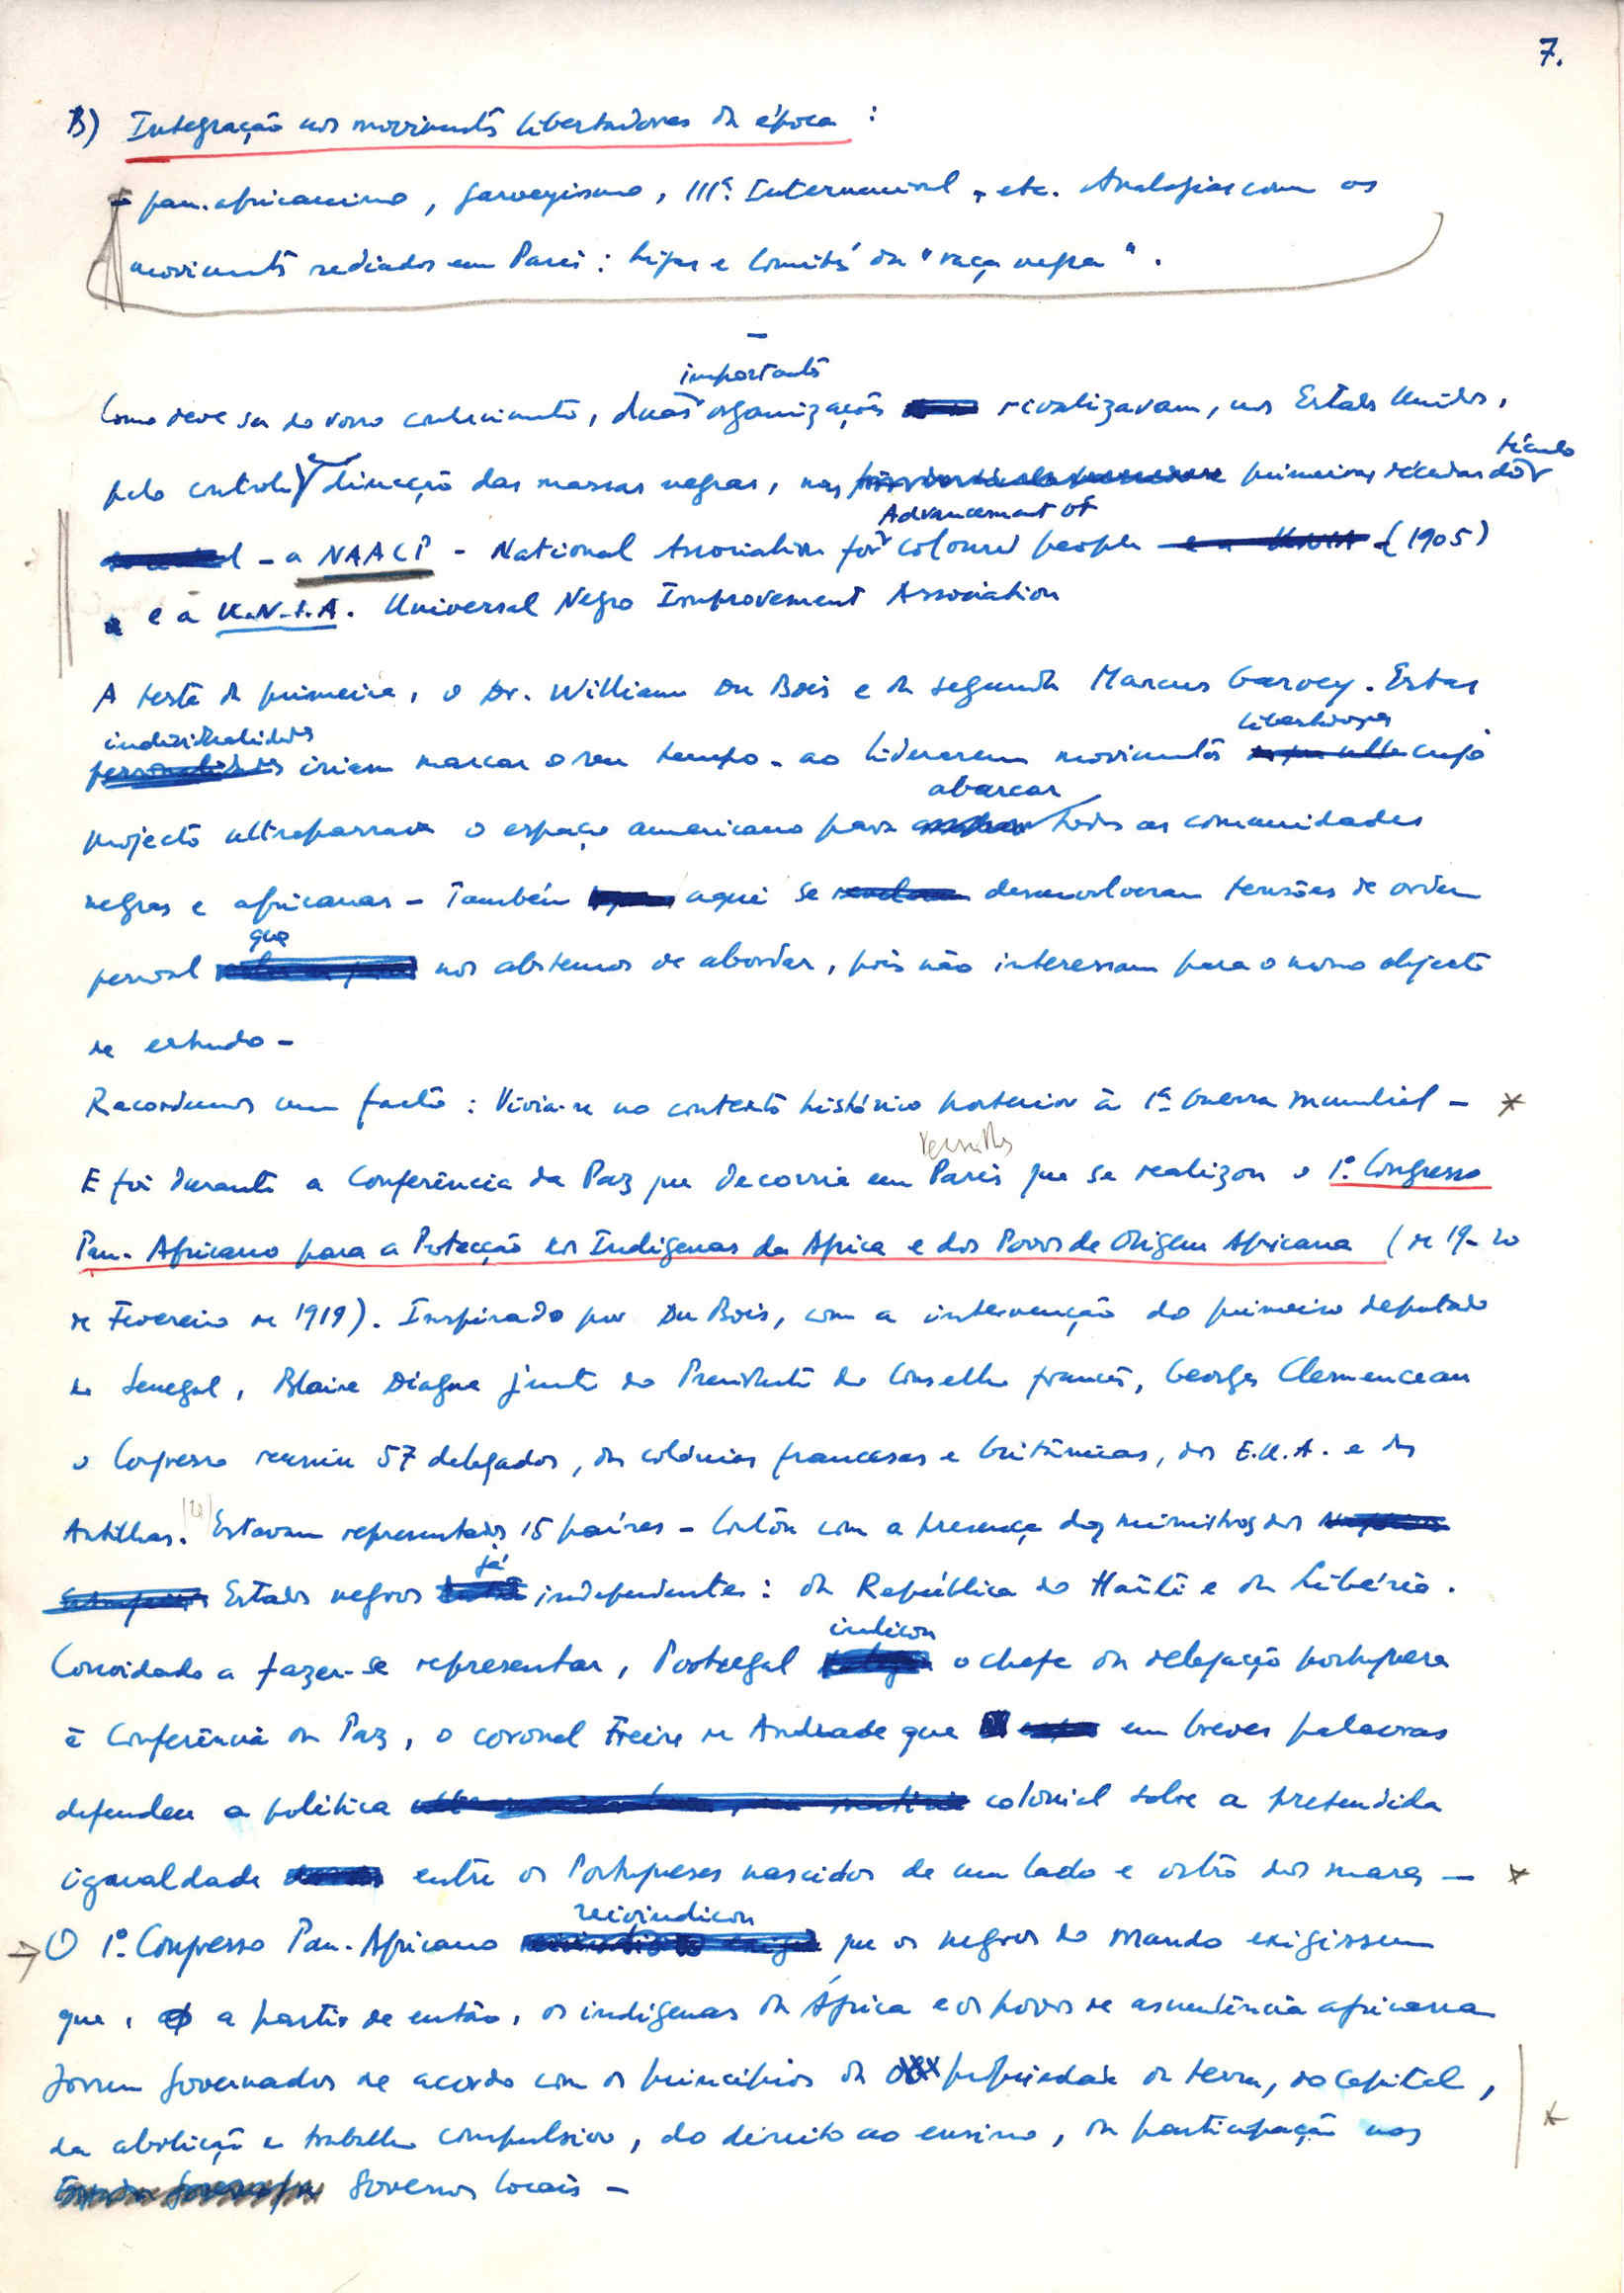 7.
B) Integração nos movimentos libertadores da época :
- pan-africanismo, garveyismo, IIIª Internacional, etc. Analogias com os
movimentos sediados em Paris : Ligas e Comités da "raça negra".
-
importantes
Como deve ser do vosso conhecimento, duas organizações rivalizavam, nos Estados Unidos,
pelo controle e direcção das massas negras, nas primeiras décadas do
século
Advancement of
- a NAACP - National Association for coloured people (1905)
e a U.N.I.A. Universal Negro Improvement Association
A testa da primeira, o Dr. William Du Bois e da segunda Marcus Garvey. Estas
individualidades libertadores
iriam marcar o seu tempo - ao liderarem movimentos cujo
abarcar
projecto ultrapassava o espaço americano para todas as comunidades
negras e africanas - Também aqui se desenvolveram tensões de ordem
que
pessoal nos abstemos de abordar, pois não interessam para o nosso objecto
de estudo -
Recordemos um facto : Vivia-se no contexto histórico posterior à 1ª Guerra Mundial - *
Versailles
E foi durante a Conferência da Paz que decorria em Paris que se realizou o 1º. Congresso
Pan-Africano para a Protecção dos Indígenas da Africa e dos Povos de Origem Africana (de 19-20
de Fevereiro de 1919). Inspirado por Du Bois, com a intervenção do primeiro deputado
do Senegal, Blaise Diagne junto do Presidente do Conselho francês, Georges Clemenceau
o Congresso reuniu 57 delegados, das colónias francesas e britânicas, dos E.U.A. e das
Antilhas. Estavam representados 15 países - Contou com a presença dos ministros dos
já
Estados negros independentes : da República do Haïti e da Libéria.
indicou
Convidado a fazer-se representar, Portugal o chefe da delegação portuguesa
à Conferência da Paz, o coronel Freire de Andrade que em breves palavras
defendeu a política colonial sobre a pretendida
igualdade entre os Portugueses nascidos de um lado e outro dos mares - *
reivindicou
→ O 1º. Congresso Pan-Africano que os negros do mundo exigissem
que, a partir de então, os indígenas da África e os povos de ascendência africana
fossem governados de acordo com os princípios da propriedade da terra, do capital,
da abolição e trabalho compulsivo, do direito ao ensino, da participação nos *
Governos locais -